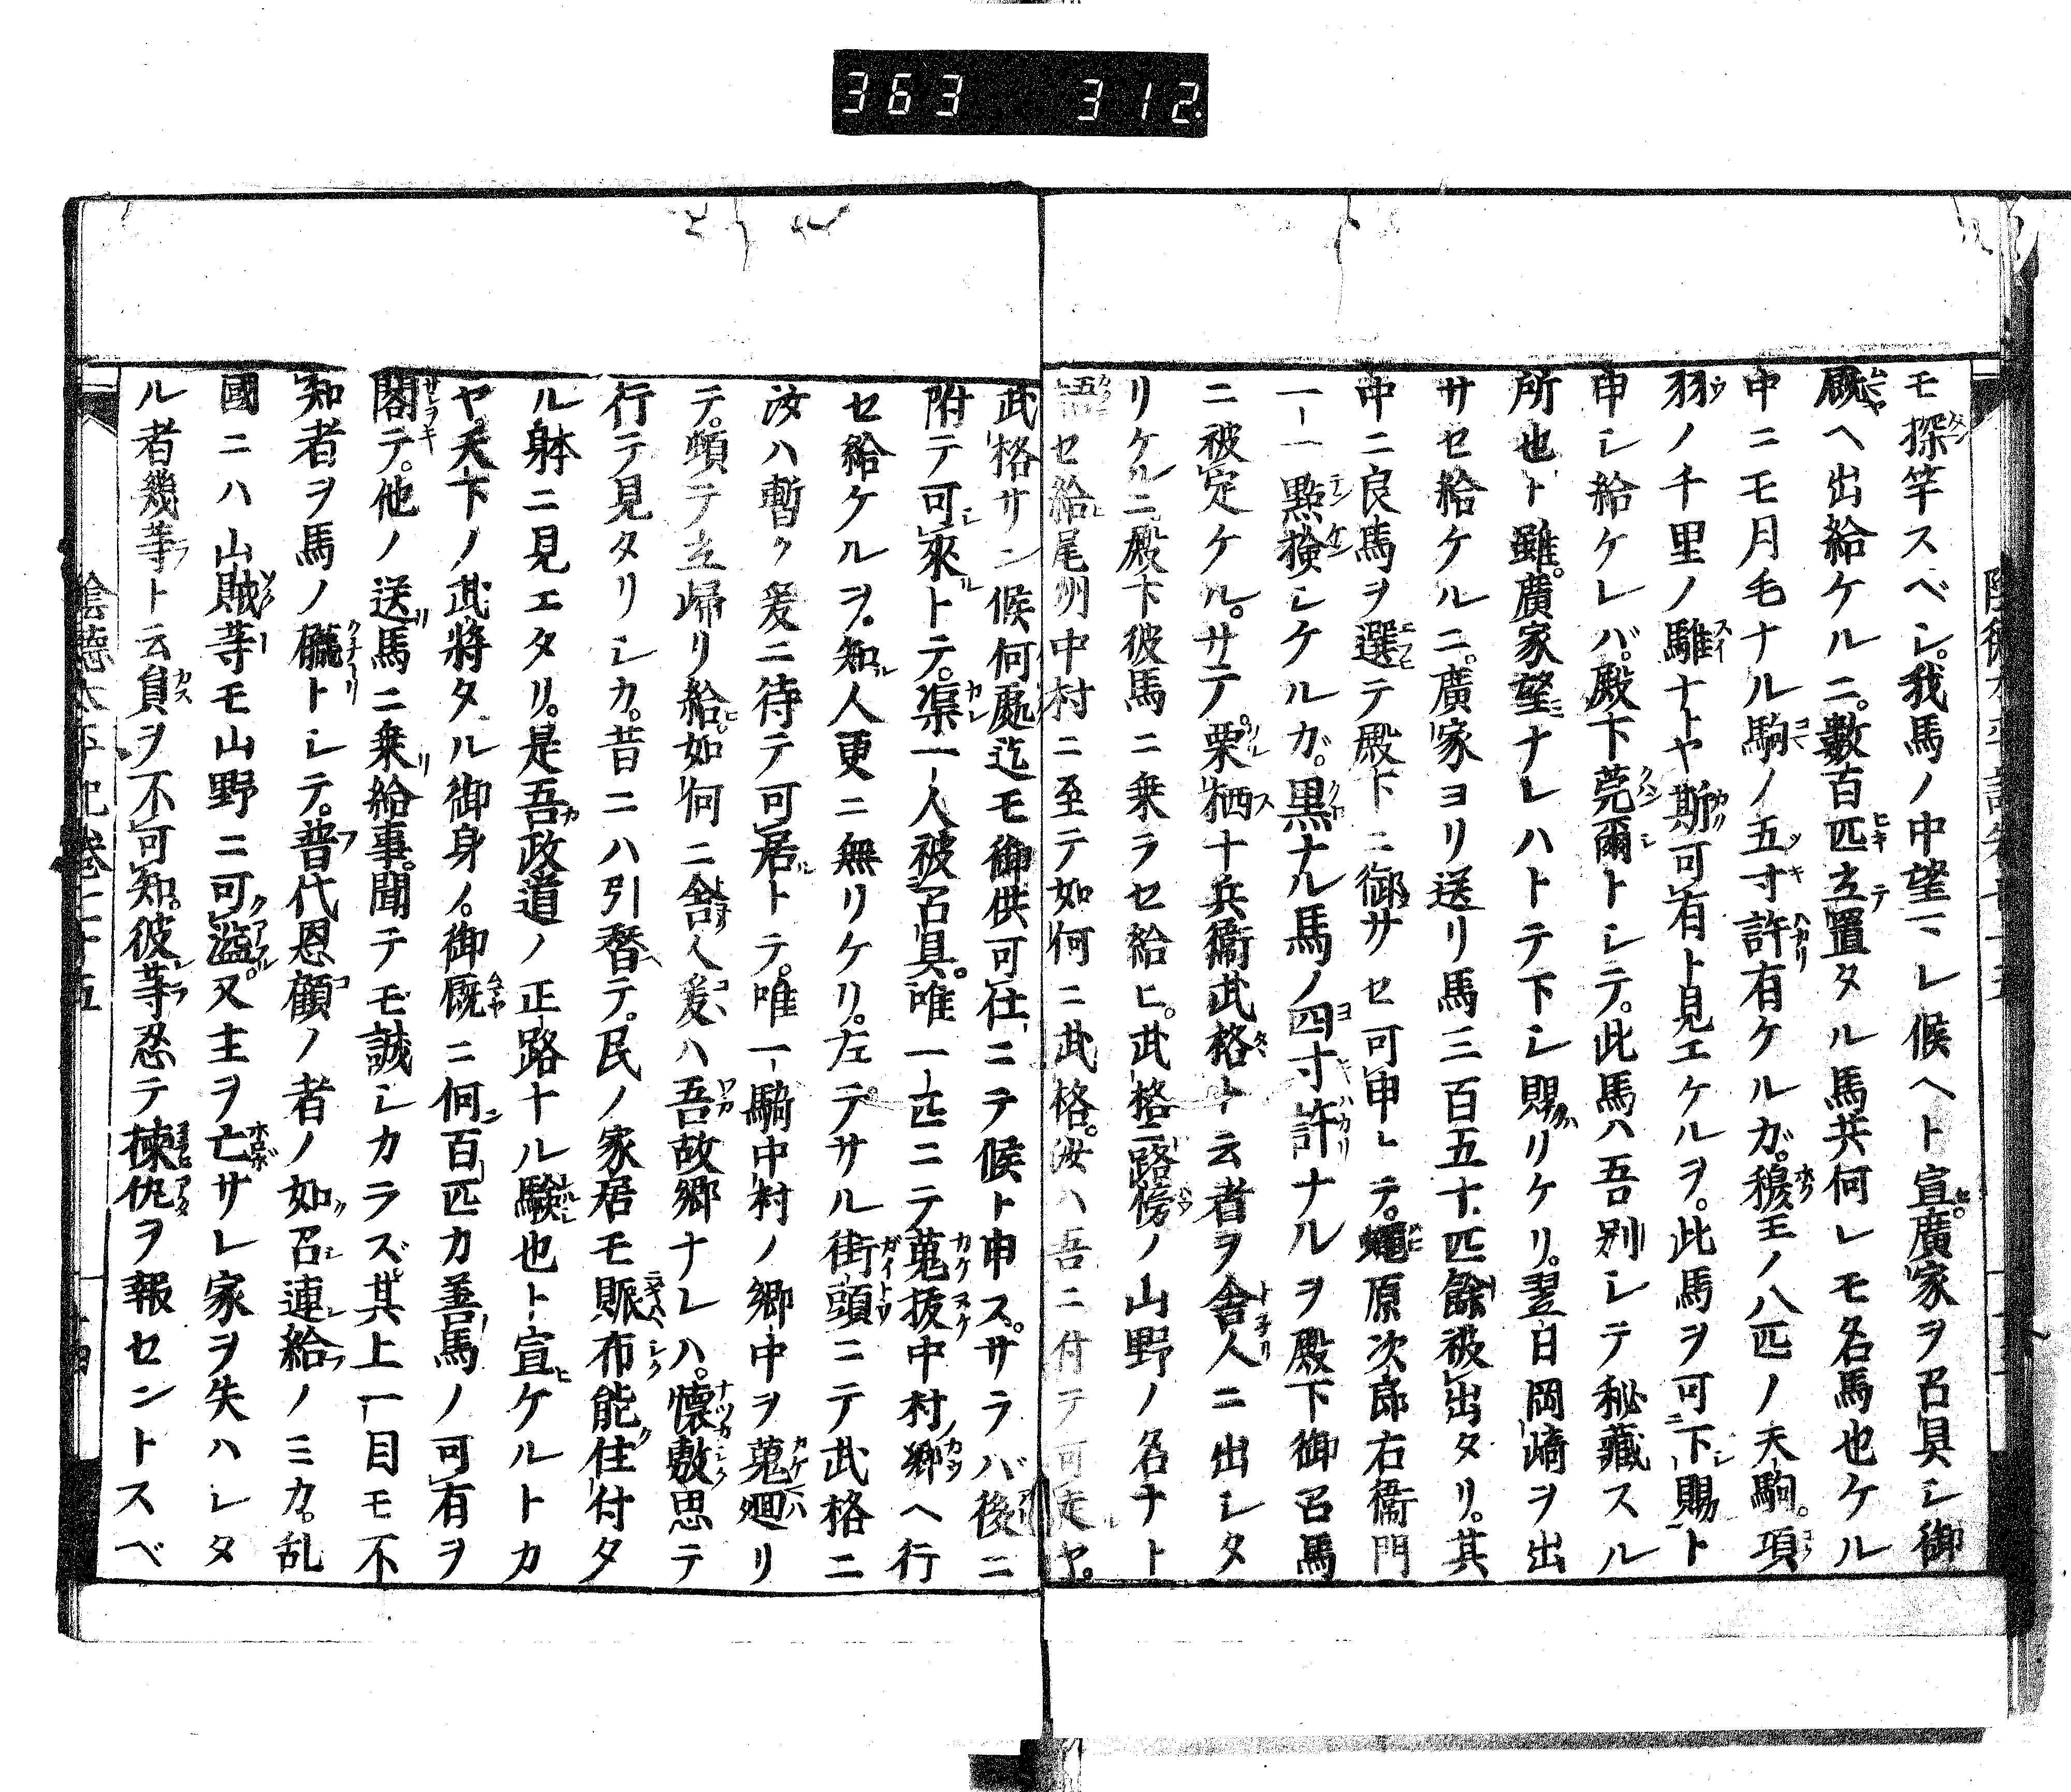 363 312
モ探竿スベシ。我馬ノ中望ミレ候ヘト宣。廣家ヲ召具シ御
厩ヘ出給ケルニ。數百匹立置タル馬共何レモ名馬也ケル
中ニモ月毛ナル駒ノ五寸許有ケルガ。穆王ノ八匹ノ天駒。項
羽ノ千里ノ騅ナトヤ斯可有ト見エケルヲ。此馬ヲ可下賜ト
申シ給ケレバ。殿下莞爾トシテ。此馬ハ吾別シテ秘藏スル
所也ト雖。廣家望ナレハトテ下シ賜リケリ。翌日岡崎ヲ出
サセ給ケルニ。廣家ヨリ送リ馬三百五十匹餘被出タリ。其
中ニ良馬ヲ選テ殿下ニ御サセ可申トテ。蠅原次郎右衞門
一一點撿シケルガ。黒ナル馬ノ四寸許ナルヲ殿下御召馬
ニ被定ケル。サテ。栗栖十兵衞武格ト云者ヲ舎人ニ出シタ
リケルニ殿下彼馬ニ乗ラセ給ヒ。武格ニ路傍ノ山野ノ名ナト
語セ給尾州中村ニ至テ如何ニ武格。汝ハ吾ニ付テ可走ヤ。
武格サン候何處迄モ御供可仕ニテ候ト申ス。サラバ後ニ
附テ可來トテ。渠一人被召具。唯一匹ニテ蒐拔中村ノ郷ヘ行
セ給ケルヲ。知人更ニ無リケリ。左テサル街頭ニテ武格ニ
汝ハ暫ク爰ニ待テ可居トテ。唯一騎中村ノ郷中ヲ蒐廻リ
テ。頓テ立歸リ給如何ニ舎人爰ハ吾故郷ナレハ。懐敷思テ
行テ見タリシカ。昔ニハ引替テ。民ノ家居モ賑布能住付タ
ル躰ニ見エタリ。是吾政道ノ正路ナル驗也ト宣ケルトカ
ヤ天下ノ武將タル御身ノ。御厩ニ何百匹カ善馬ノ可有ヲ
閣テ。他ノ送馬ニ乗給事。聞テモ誠シカラズ。其上一目モ不
知者ヲ馬ノ龓トシテ。普代恩顧ノ者ノ如召連給ノミカ。乱
國ニハ山賊等モ山野ニ可溢。又主ヲ亡サレ家ヲ失ハレタ
ル者幾等ト云員ヲ不可知。彼等忍テ棟仇ヲ報セントスベ
陰徳太平記巻七十五